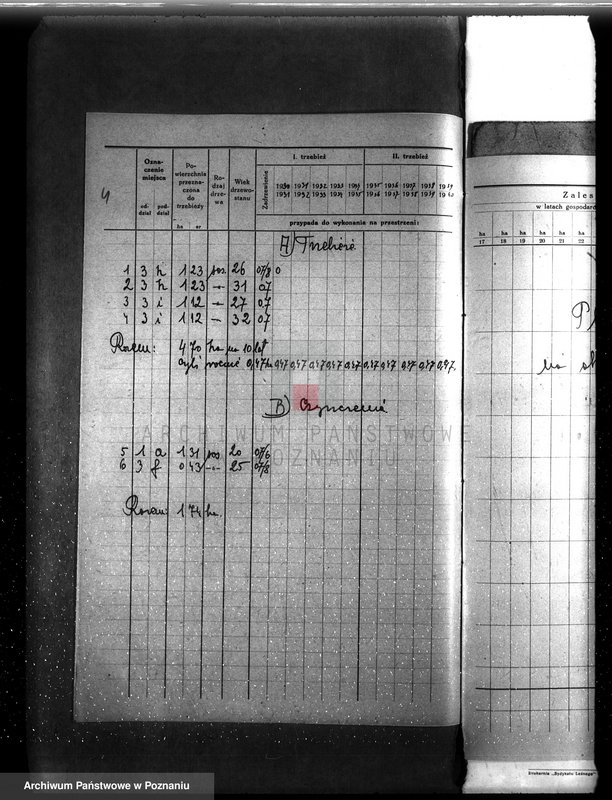 4
Ozna-
czenie
miejsca
od-
dział
pod-
dział
Po-
wierzchnia
przezna-
czona
do
trzebieży
ha ar
Ro-
dzaj
drze-
wa
Wiek
drzewo-
stanu
Zadrzewienie
I. trzebież II. trzebież
przypada do wykonania na przestrzeni:
A) Trzebieże
1 3 h 1 23 sos. 26 07/8 0
2 3 h 1 23 - 31 07
3 3 i 1 12 - 27 07
4 3 i 1 12 - 32 07
Razem: 4 70 ha na 10 lat
czyli rocznie 0,47 ha 0,47 0,47 0,47 0,47 0,47 0,47 0,47 0,47 0,47 0,47
B) Czyszczenia
5 1 a 1 31 sos. 20 07/6
6 3 f 0 43 -"- 25 07/8
Razem: 1 74 ha.
ARCHIWUM PAŃSTWOWE
POZNANIU
Zales
w latach gospodar
ha ha ha ha ha
17 18 19 20 21 22
Drukarnia „Sydykatu Leśnego"
Archiwum Państwowe w Poznaniu